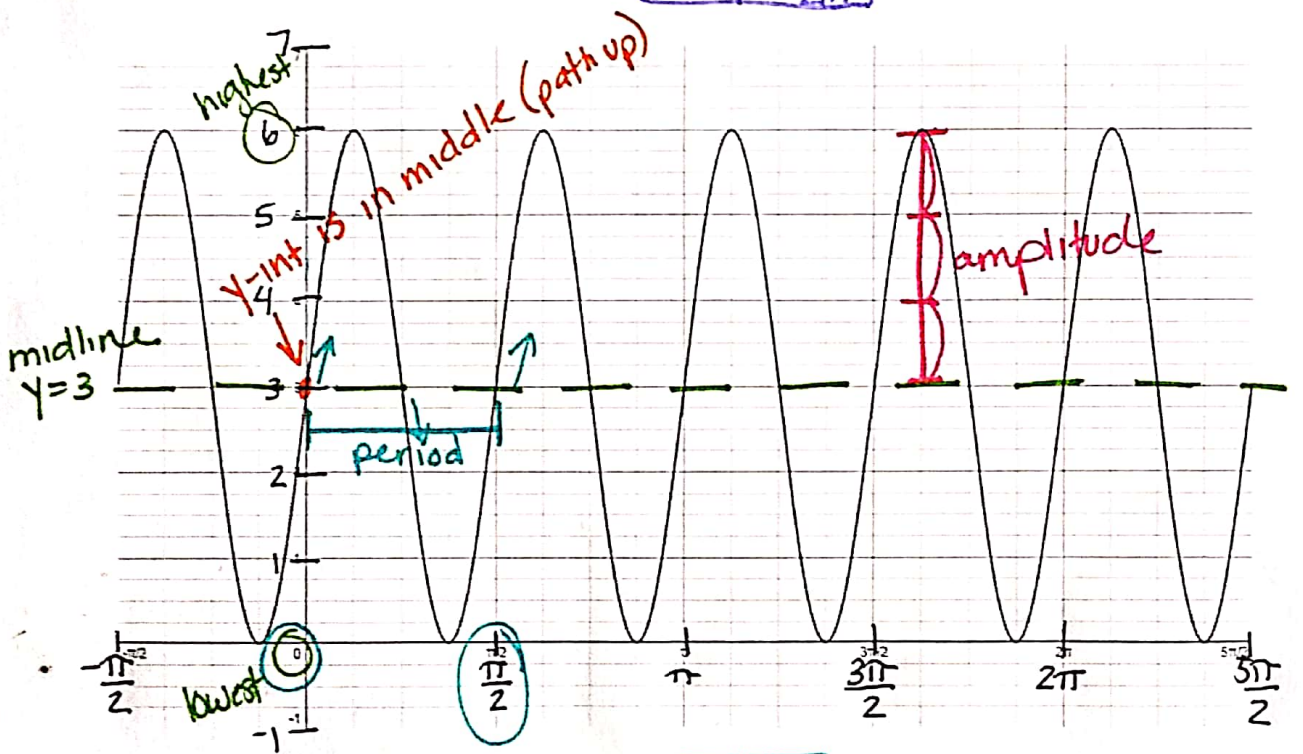 7
highest
6
5
y-int is in middle (path up)
4
amplitude
midline
y=3
3
period
2
1
0
lowest
-π/2
π/2
π
3π/2
2π
5π/2
-1